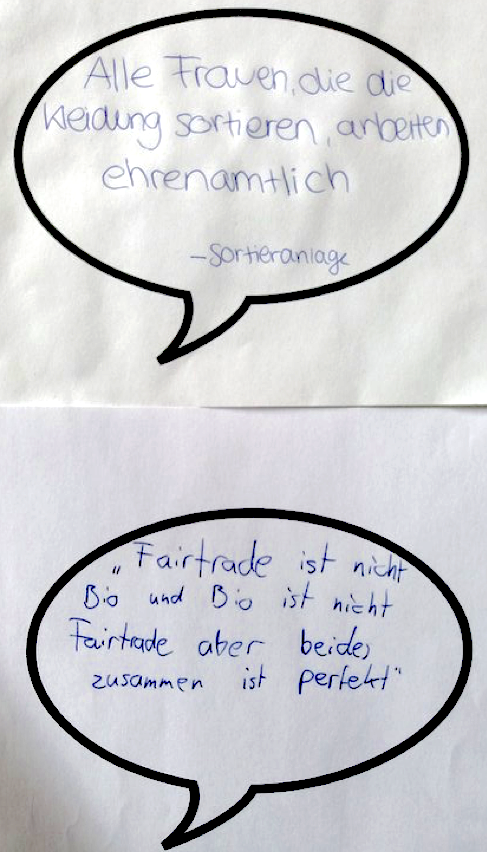 Alle Frauen, die die
Kleidung sortieren, arbeiten
ehrenamtlich
-Sortieranlage
„Fairtrade ist nicht
Bio und Bio ist nicht
Fairtrade aber beides
zusammen ist perfekt“